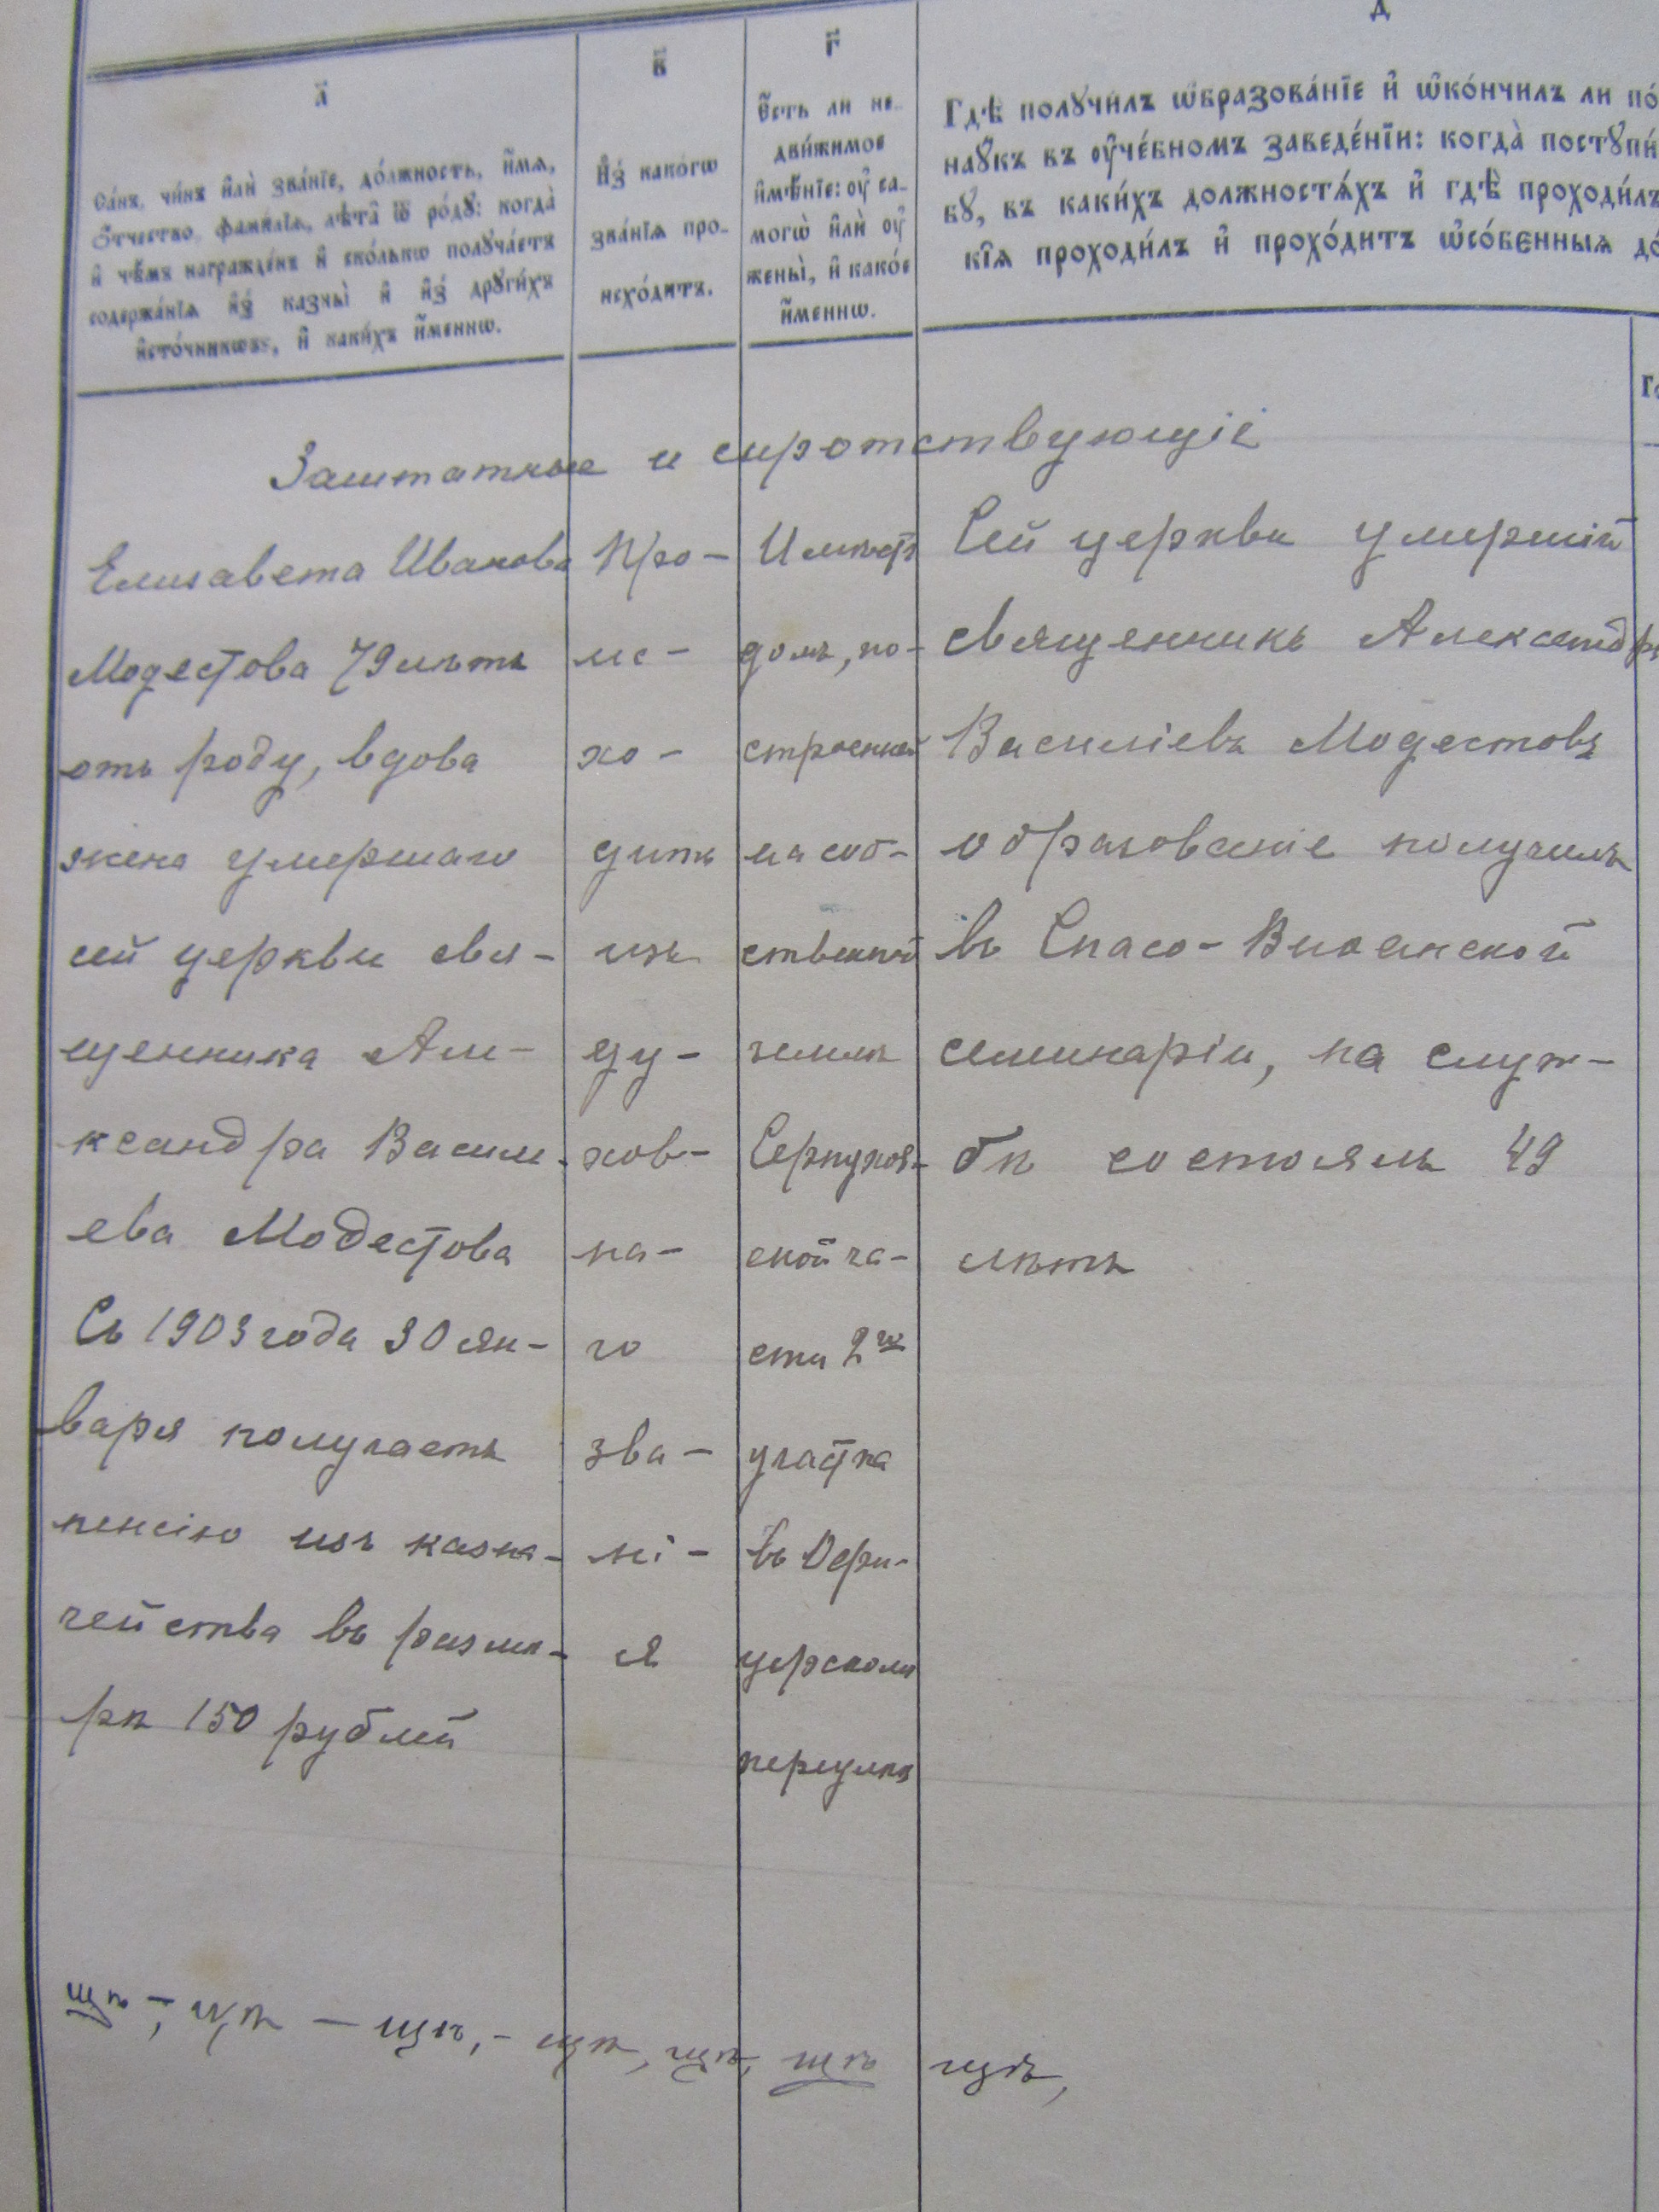 а҃
Са́нъ, чи́нъ и҆лѝ зва́нїе, до́лжность, и҆́мѧ,
ѻ҆́тчество, фами́лїѧ, лѣ́та ѿ ро́дꙋ: когда̀
и҆ чѣ́мъ награжде́нъ и҆ ско́лькѡ получа́етъ
содержа́нїѧ и҆з̾ казны̀ и҆ и҆з̾ други́хъ
и҆сто́чникѡвъ, и҆ каки́хъ и҆́меннѡ.
в҃
И҆з̾ како́гѡ
зва́нїѧ про-
исхо́дитъ.
г҃
Е҆́сть ли не-
дви́жимое
и҆мѣ́нїе: ᲂу҆ са-
могѡ̀ и҆лѝ ᲂу҆
жены̀, и҆ како́е
и҆́меннѡ.
д
Гдѣ̀ получи́лъ ѡ҆бразова́нїе и҆ ѡ҆ко́нчилъ ли по́
наукъ въ ᲂу҆че́бномъ заведе́нїи: когда̀ поступи́
бꙋ, въ каки́хъ должностѧ́хъ и҆ гдѣ̀ проходи́лъ
кїѧ проходи́лъ и҆ прохо́дитъ ѡ҆со́бєнныѧ до́
Заштатные и сиротствующіе
Елисавета Иванова
Модестова 79 лѣтъ
отъ роду, вдова
жена умершаго
сей церкви свя-
щенника Але-
ксандра Василь-
ева Модестова
Съ 1903 года 30 ян-
варя получаетъ
пенсію изъ казна-
чейства въ размѣ-
рѣ 150 рублей
Про-
ис-
хо-
дитъ
изъ
ду-
хов-
на-
го
зва-
ні-
я
Имѣетъ
домъ, по-
строенный
на соб-
ственной
землѣ
Серпухов-
ской ча-
сти 2го
участка
въ
переулкѣ
Сей церкви умершій
священникъ Александръ
Василіевъ Модестовъ
образованіе получилъ
въ Спасо-Виѳанской
семинаріи, на служ-
бѣ состоялъ 49
лѣтъ